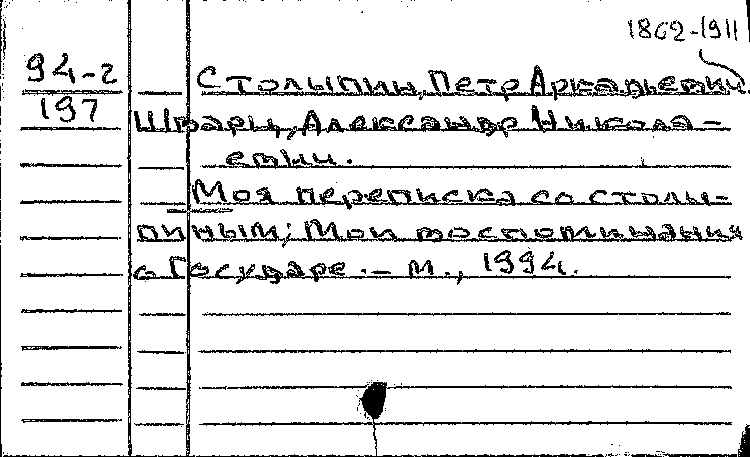 1862-1911
94-2
197
Столыпин, Петр Аркадьевич
Шварц, Александр Никола-
евич.
Моя переписка со столы-
пиным; Мои воспоминания
о Государе. - М., 1994.